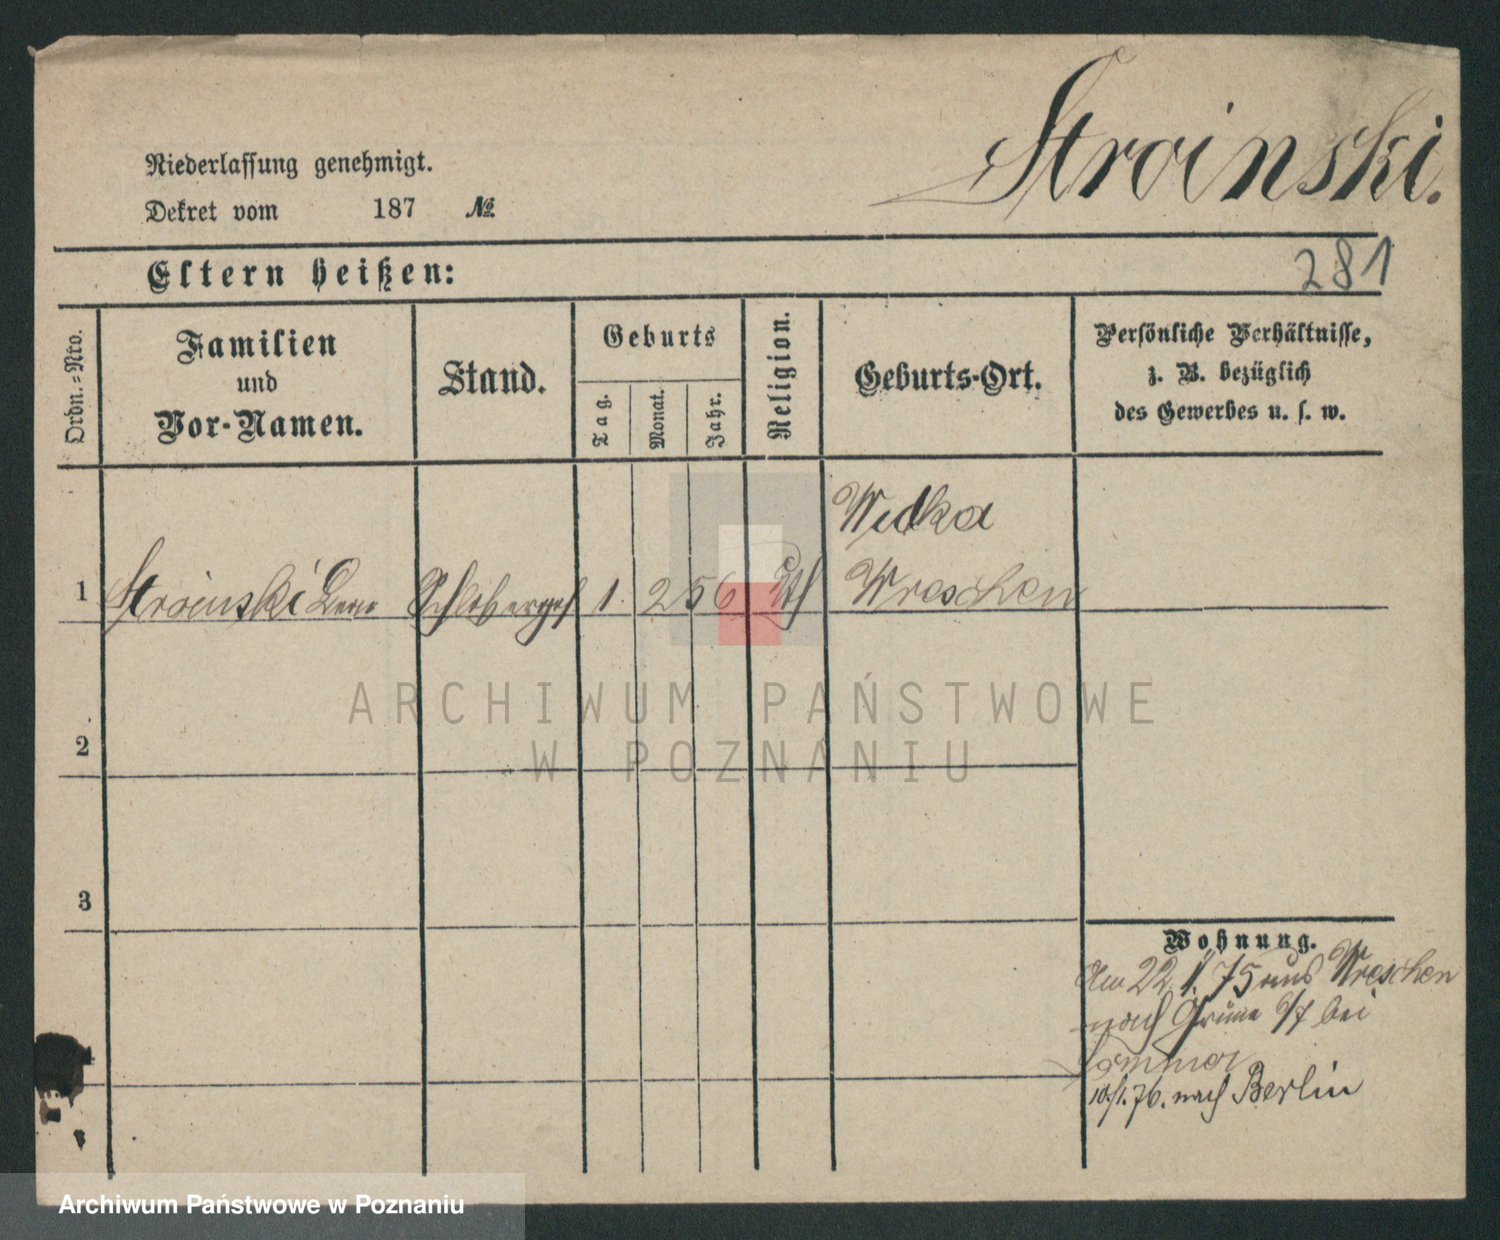 Stroinski.
Niederlassung genehmigt.
Dekret vom 187 №
281
Eltern heißen:
Ordn.=Nro.
Familien
und
Vor-Namen.
Stand.
Geburts
Tag.
Monat.
Jahr.
Religion.
Geburts-Ort.
Persönliche Verhältnisse,
z. B. bezüglich
des Gewerbes u. s. w.
Wreschen
1 Stroinski 1. 2 56
2
3
Wohnung.
22. 1. 75 aus Wreschen
nach 6/7 bei
10./1. 76. nach Berlin
ARCHIWUM PAŃSTWOWE
W POZNANIU
Archiwum Państwowe w Poznaniu